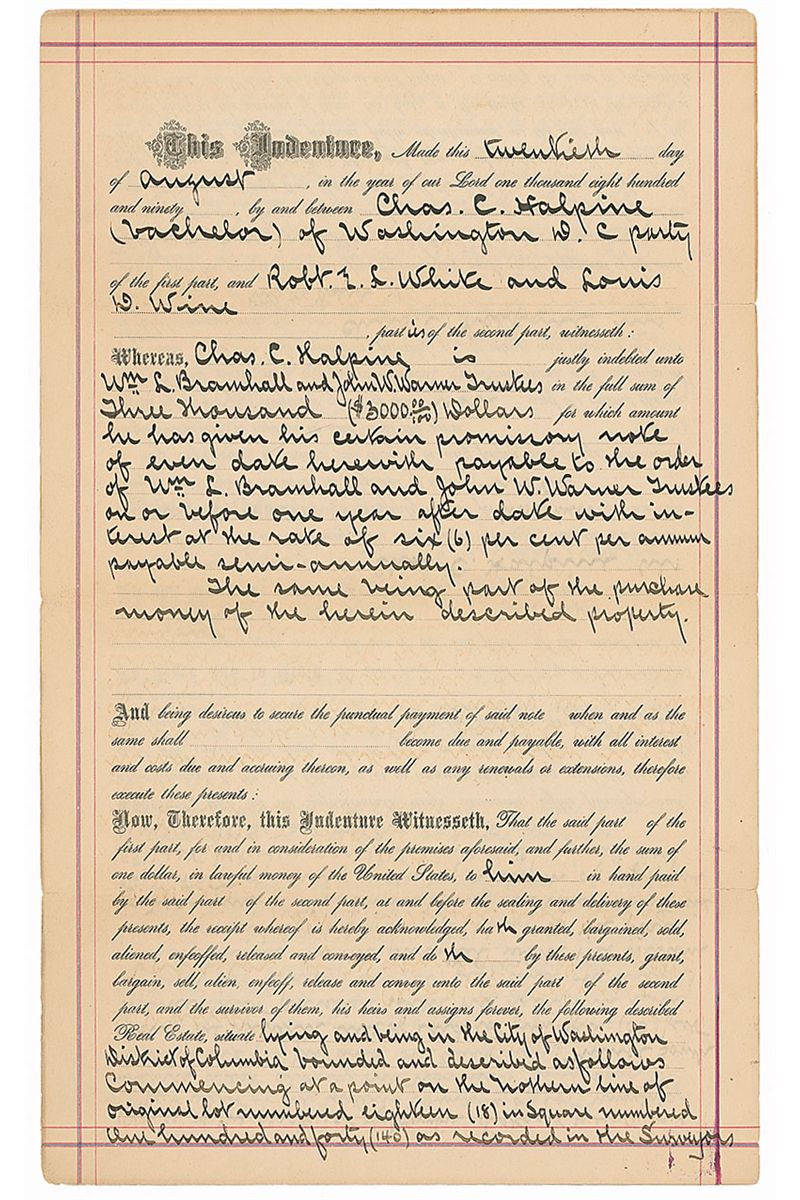 This Indenture, Made this twentieth day
of August , in the year of our Lord one thousand eight hundred
and ninety , by and between Chas. C. Halpine
(bachelor) of Washington D. C party
of the first part, and Robt. E. L. White and Louis
D. Wine
, parties of the second part, witnesseth:
Whereas, Chas. C. Halpine is justly indebted unto
Wm L. Bramhall and John W. Warner Trustees in the full sum of
Three thousand ($3000.00/100) Dollars for which amount
he has given his certain promissory note
of even date herewith payable to the order
of Wm L. Bramhall and John W. Warner Trustees
on or before one year after date with in-
terest at the rate of six (6) per cent per annum
payable semi-annually.
The same being part of the purchase
money of the herein described property.
And being desirous to secure the punctual payment of said note when and as the
same shall become due and payable, with all interest
and costs due and accruing thereon, as well as any renewals or extensions, therefore
execute these presents:
Now, Therefore, this Indenture Witnesseth, That the said part of the
first part, for and in consideration of the premises aforesaid, and further, the sum of
one dollar, in lawful money of the United States, to him in hand paid
by the said part of the second part, at and before the sealing and delivery of these
presents, the receipt whereof is hereby acknowledged, hath granted, bargained, sold,
aliened, enfeoffed, released and conveyed, and doth by these presents, grant,
bargain, sell, alien, enfeoff, release and convey unto the said part of the second
part, and the survivor of them, his heirs and assigns forever, the following described
Real Estate, situate lying and being in the City of Washington
District of Columbia bounded and described as follows
Commencing at a point on the Nothern line of
original lot numbered eighteen (18) in Square numbered
One hundred and forty (140) as recorded in the Surveyors